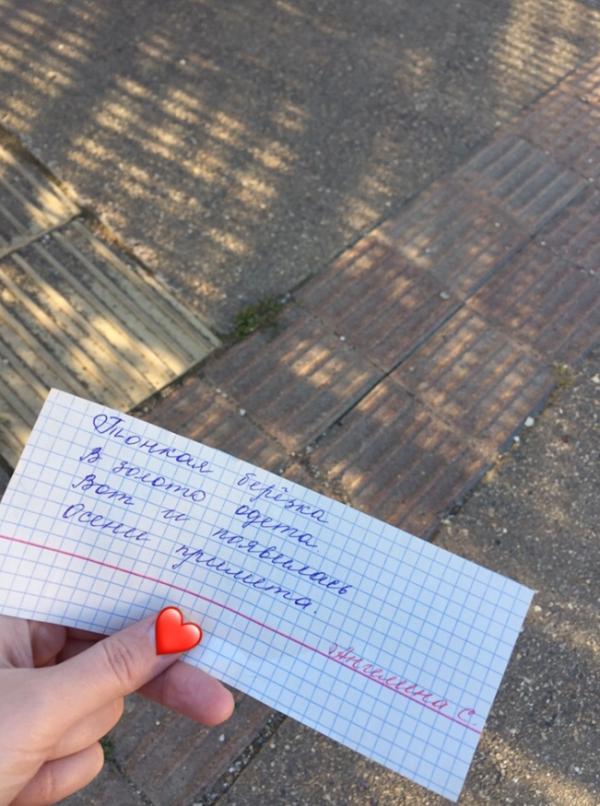 Тонкая берёзка
В золото одета
Вот и появилась
Осени примета.
Ангелина С.